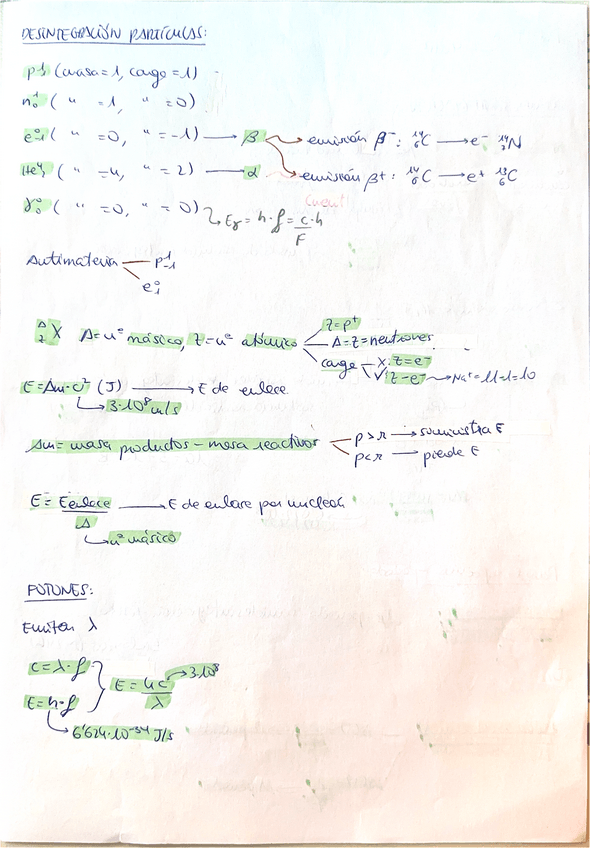 DESINTEGRACIÓN PARTÍCULAS:
p¹₁ (masa=1, carga=1)
n¹₀ ( " =1, " =0)
e⁰₋₁ ( " =0, " =-1) → β → emisión β⁻: ¹⁴₆C → e⁻ ¹⁴₇N
He⁴₂ ( " =4, " =2) → α emisión β⁺: ¹⁴₆C → e⁺ ¹³₆C
γ⁰₀ ( " =0, " =0) ↳ Eγ = h·f = c·h/F
Antimateria — p¹₋₁
e⁰₁
ᴬ_Z X A=nº másico, Z=nº atómico
Z=p⁺
A-Z=neutrones
carga — X: Z=e⁻
✓ Z-e⁻ → Na⁺=11-1=10
E=Δm·c² (J) → E de enlace
↳ 3·10⁸ m/s
Δm= masa productos - masa reactivos
p>r → suministra E
p<r → pierde E
E = Eenlace/A → E de enlace por nucleón
↳ nº másico
FOTONES:
Emiten λ
c=λ·f
E=h·f
E = hc/λ → 3·10⁸
↳ 6'624·10⁻³⁴ J/s